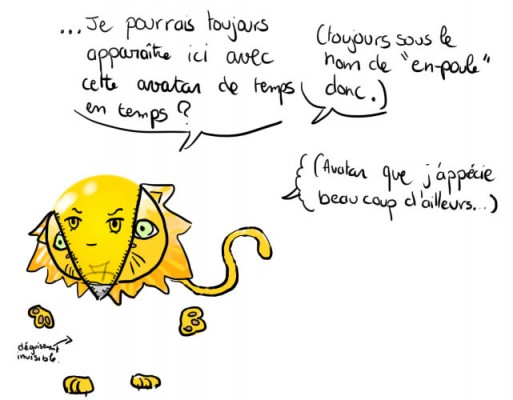 ...Je pourrais toujours
apparaître ici avec
cette avatar de temps
en temps ?
(toujours sous le
nom de "en-poule"
donc.)
(Avatar que j'appécie
beaucoup d'ailleurs...)
déguisement
invisible.